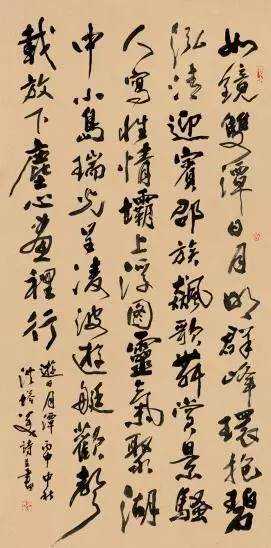 如鏡雙潭日月明群峰環抱碧
泓清迎賓部族飆歌舞賞景騷
人寫性情壩上浮圖靈氣聚湖
中小島瑞光呈凌波遊艇歡聲
載放下塵心畫裡行
遊日月潭 甲申秋
詩并書